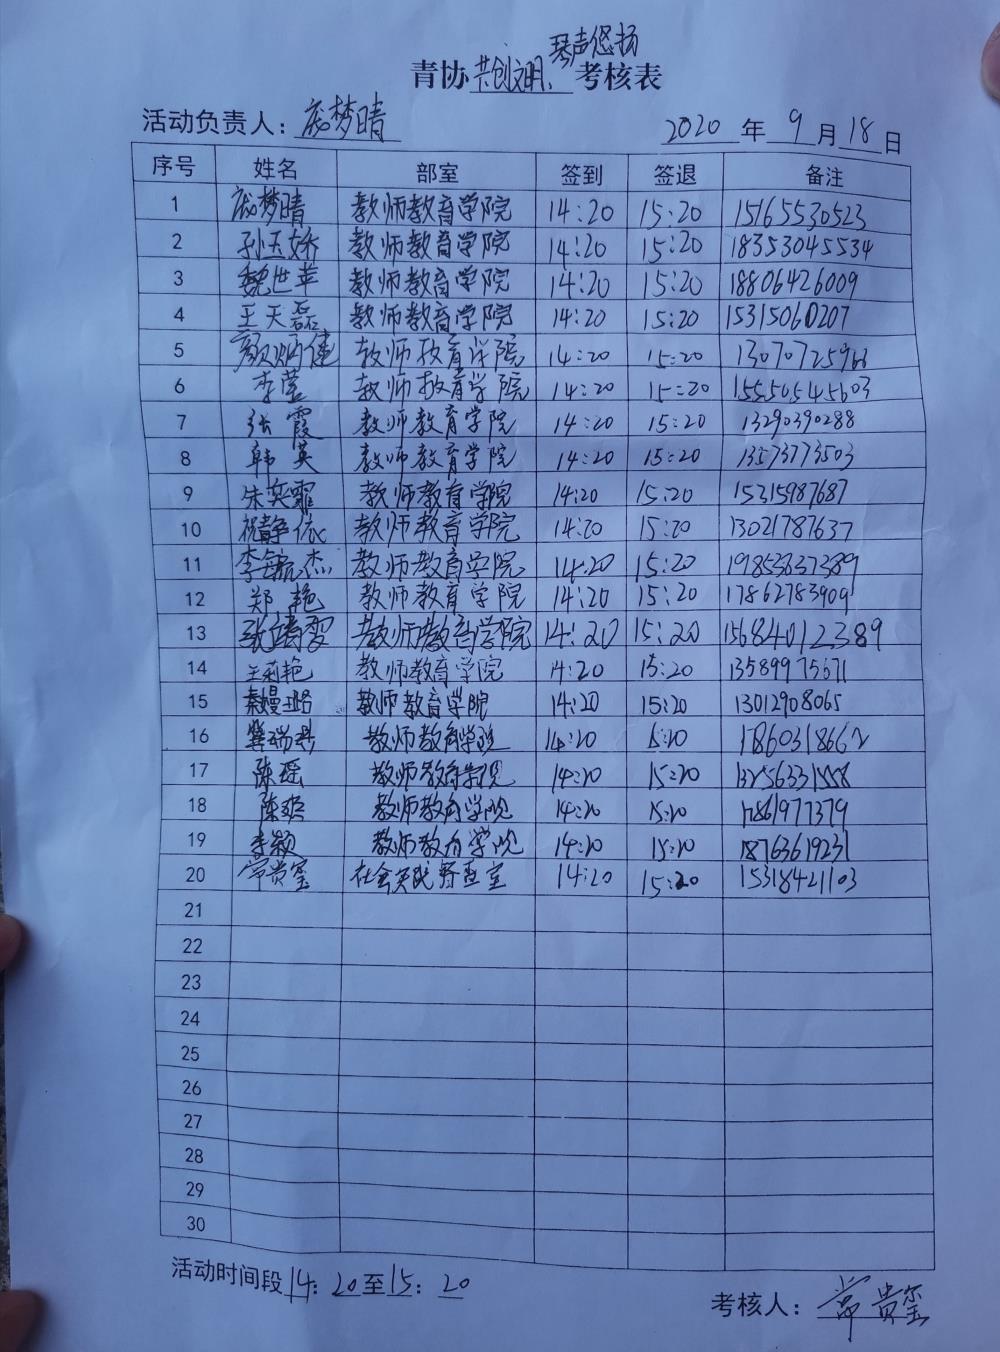 琴声悠扬
青协共创文明、考核表
活动负责人：庞梦晴 2020年9月18日
序号 姓名 部室 签到 签退 备注
1 庞梦晴 教师教育学院 14:20 15:20 15165530523
2 孙玉娇 教师教育学院 14:20 15:20 18353045534
3 魏世苹 教师教育学院 14:20 15:20 18806426009
4 王天磊 教师教育学院 14:20 15:20 15315060207
5 颜炳健 教师教育学院 14:20 15:20 13070725966
6 李莹 教师教育学院 14:20 15:20 15550545603
7 张霞 教师教育学院 14:20 15:20 13290390288
8 韩英 教师教育学院 14:20 15:20 13573773503
9 教师教育学院 14:20 15:20 15315987687
10 祝静依 教师教育学院 14:20 15:20 13021787637
11 李毓杰 教师教育学院 14:20 15:20 19853837389
12 郑艳 教师教育学院 14:20 15:20 17862783909
13 张靖雯 教师教育学院 14:20 15:20 15684012389
14 王莉艳 教师教育学院 14:20 15:20 13589975671
15 秦嫚璐 教师教育学院 14:20 15:20 13012908065
16 教师教育学院 14:20 15:20 17860318662
17 陈瑶 教师教育学院 14:20 15:20
18 教师教育学院 14:20 15:20 17861977379
19 李颖 教师教育学院 14:20 15:20 18763619231
20 常贵玺 14:20 15:20 15318421103
21
22
23
24
25
26
27
28
29
30
活动时间段14：20至15：20
考核人：常贵玺